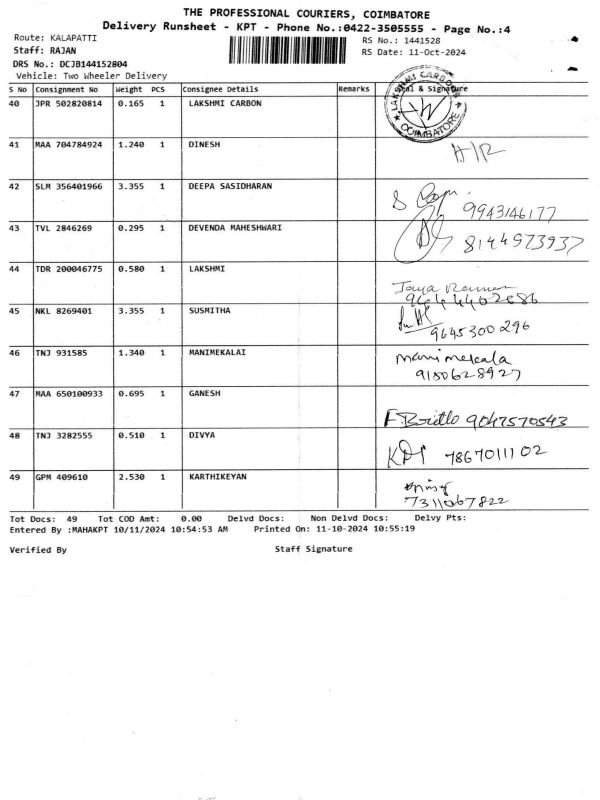 THE PROFESSIONAL COURIERS, COIMBATORE
Delivery Runsheet - KPT - Phone No.:0422-3505555 - Page No.:4
Route: KALAPATTI
RS No.: 1441528
Staff: RAJAN
RS Date: 11-Oct-2024
DRS No.: DCJB144152804
Vehicle: Two Wheeler Delivery
S No Consignment No Weight PCS Consignee Details Remarks & Signature
40 JPR 502820814 0.165 1 LAKSHMI CARBON
LAKSHMI CARBON COIMBATORE
41 MAA 704784924 1.240 1 DINESH
42 SLM 356401966 3.355 1 DEEPA SASIDHARAN
9943146177
43 TVL 2846269 0.295 1 DEVENDA MAHESHWARI
8144973937
44 TDR 200046775 0.580 1 LAKSHMI
Jaya
45 NKL 8269401 3.355 1 SUSMITHA
9645300296
46 TNJ 931585 1.340 1 MANIMEKALAI
Manimekala
9180628927
47 MAA 650100933 0.695 1 GANESH
F. Britto 9047570543
48 TNJ 3282555 0.510 1 DIVYA
7867011102
49 GPM 409610 2.530 1 KARTHIKEYAN
7311067822
Tot Docs: 49 Tot COD Amt: 0.00 Delvd Docs: Non Delvd Docs: Delvy Pts:
Entered By :MAHAKPT 10/11/2024 10:54:53 AM Printed On: 11-10-2024 10:55:19
Verified By Staff Signature